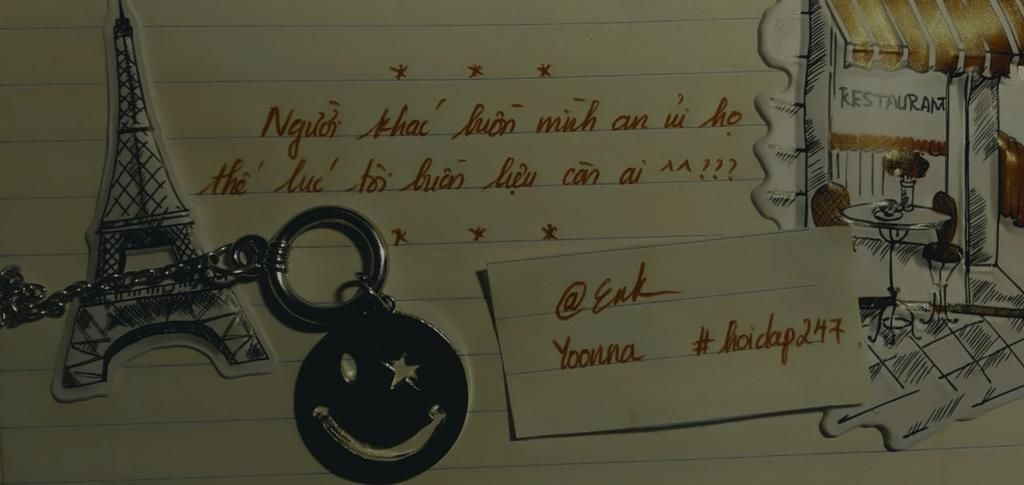 * * *
Người khác buồn mình an ủi họ
thế lúc tôi buồn liệu còn ai ^^???
* * *
RESTAURANT
@Enk
Yoonna #hoidap247.